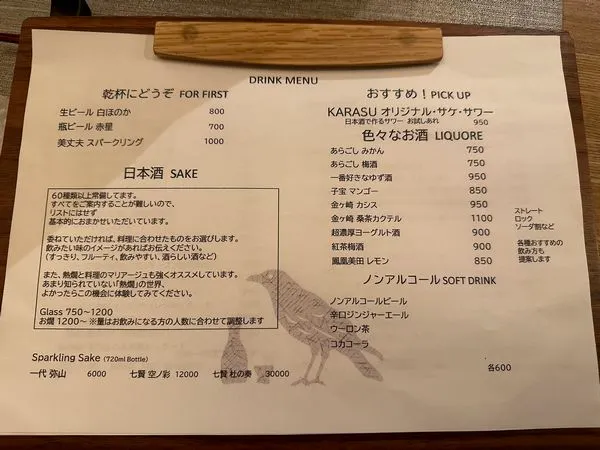 DRINK MENU
乾杯にどうぞ FOR FIRST
生ビール 白ほのか 800
瓶ビール 赤星 700
美丈夫 スパークリング 1000
日本酒 SAKE
60種類以上常備してます。
すべてをご案内することが難しいので、
リストにはせず
基本的におまかせいただいています。
委ねていただければ、料理に合わせたものをお選びします。
飲みたい味のイメージがあればお伝えください。
(すっきり、フルーティ、飲みやすい、酒らしい酒など)
また、熱燗と料理のマリアージュも強くオススメしています。
あまり知られていない「熱燗」の世界、
よかったらこの機会に体験してみてください。
Glass 750~1200
お燗 1200~ ※量はお飲みになる方の人数に合わせて調整します
Sparkling Sake (720ml Bottle)
一代 弥山 6000 七賢 空ノ彩 12000 七賢 杜の奏 30000
おすすめ！PICK UP
KARASU オリジナル・サケ・サワー
日本酒で作るサワー お試しあれ 950
色々なお酒 LIQUORE
あらごし みかん 750
あらごし 梅酒 750
一番好きなゆず酒 950
子宝 マンゴー 850
金ヶ崎 カシス 950
金ヶ崎 桑茶カクテル 1100
超濃厚ヨーグルト酒 900
紅茶梅酒 900
鳳凰美田 レモン 850
ストレート
ロック
ソーダ割など
各種おすすめの
飲み方も
提案します
ノンアルコール SOFT DRINK
ノンアルコールビール
辛口ジンジャーエール
ウーロン茶
コカコーラ
各600